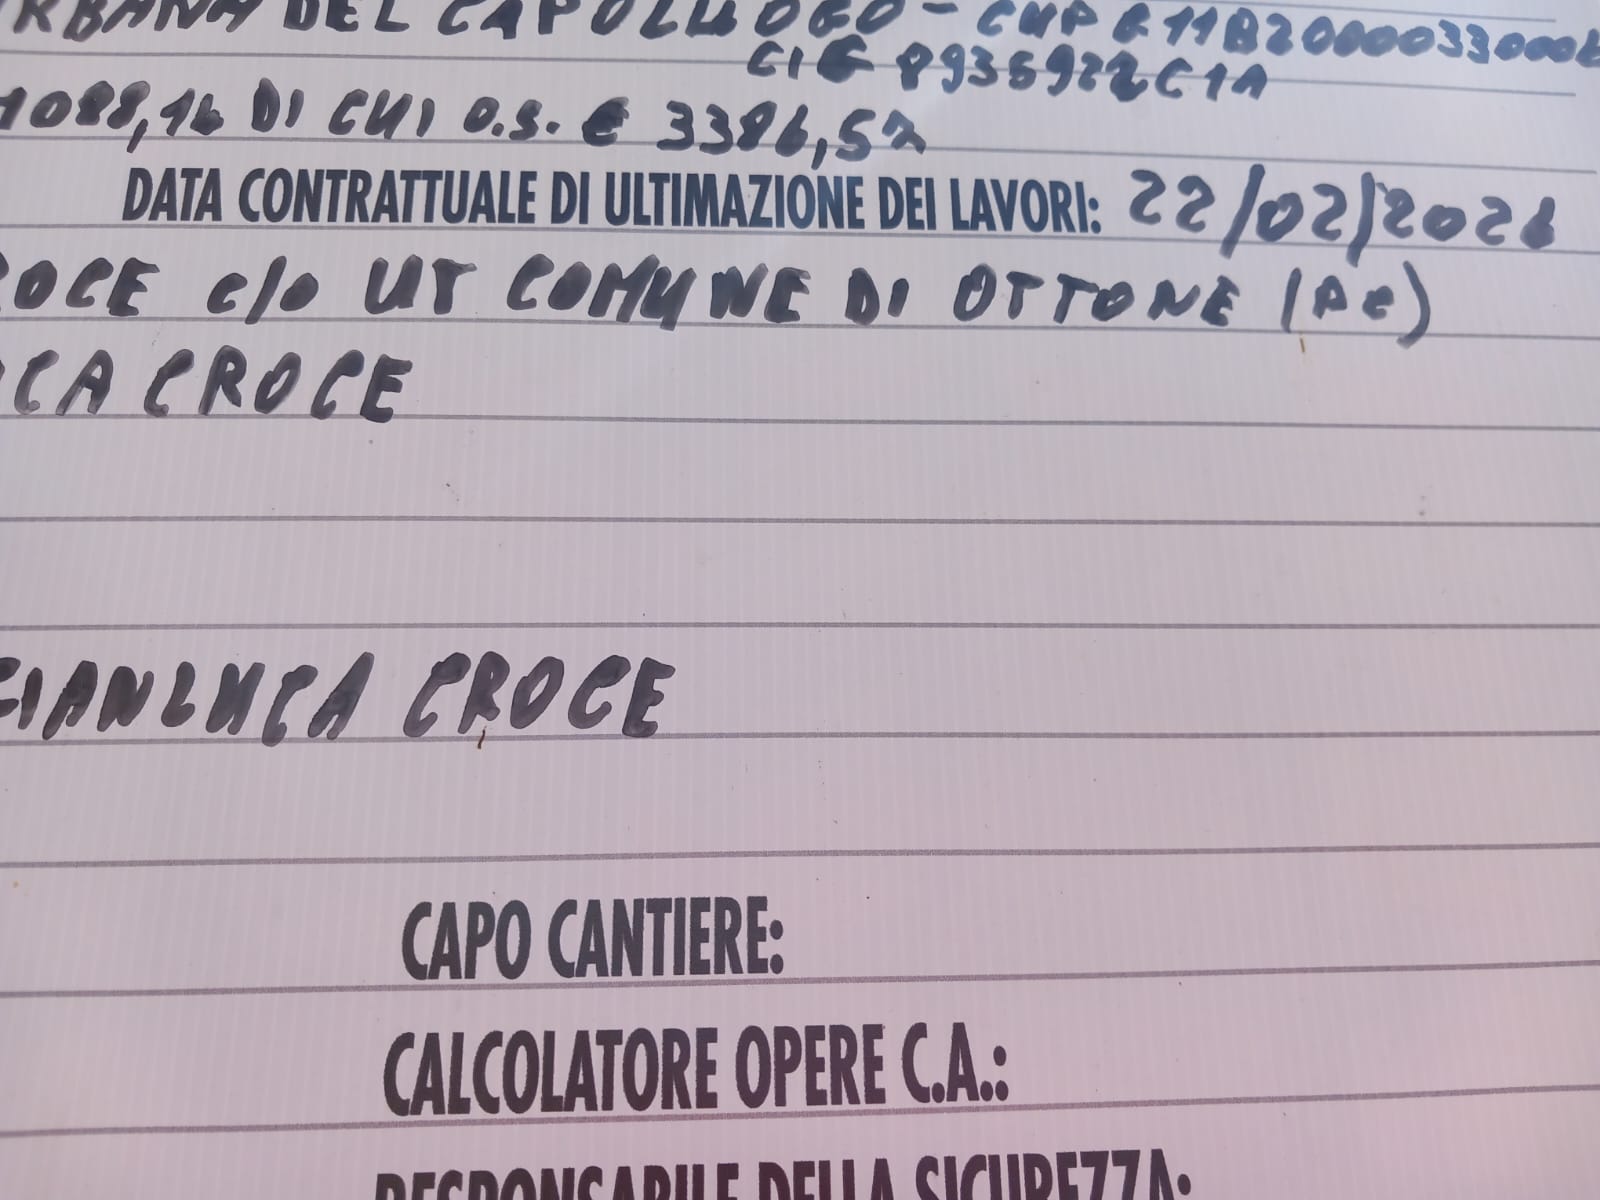 RBANA DEL CAPOLLUOGO - CUP G11B20000330006
CIG 8935922C1A
1088,16 DI CUI O.S. € 3386,57
DATA CONTRATTUALE DI ULTIMAZIONE DEI LAVORI: 22/02/2026
ROCE c/o UT COMUNE DI OTTONE (PC)
CA CROCE
GIANLUCA CROCE
CAPO CANTIERE:
CALCOLATORE OPERE C.A.:
RESPONSABILE DELLA SICUREZZA: